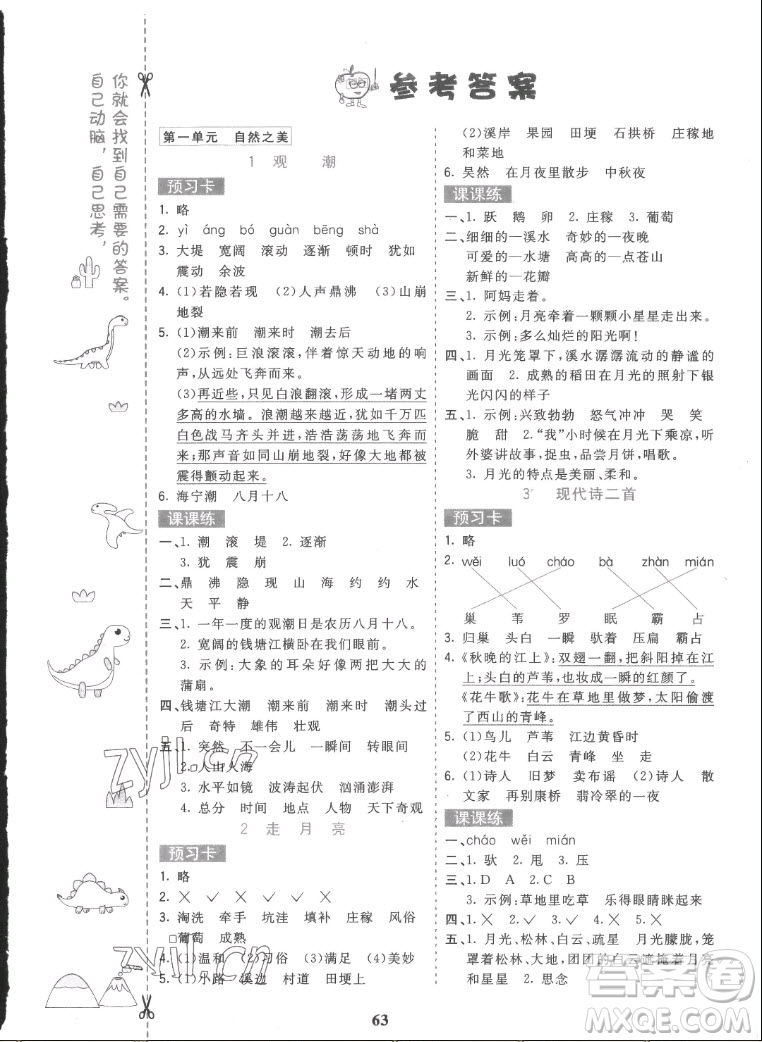 参考答案
你就会找到自己需要的答案。
自己动脑，自己思考，
第一单元 自然之美
1 观 潮
预习卡
1. 略
2. yì áng bó guàn bēng shà
3. 大堤 宽阔 滚动 逐渐 顿时 犹如
震动 余波
4. (1)若隐若现 (2)人声鼎沸 (3)山崩
地裂
5. (1)潮来前 潮来时 潮去后
(2)示例：巨浪滚滚，伴着惊天动地的
响声，飞奔而来。
(3)再近些，只见白浪翻滚，形成一堵两丈
多高的水墙。浪潮越来越近，犹如千万匹
白色战马齐头并进，浩浩荡荡地飞奔而
来；那声音如同山崩地裂，好像大地都被
震得颤动起来。
6. 海宁潮 八月十八
课课练
一、1. 潮 滚 堤 2. 逐渐
3. 犹 震 崩
二、鼎 沸 隐 现 山 山 约 约 水
天 平 静
三、1. 一年一度的观潮日是农历八月十八。
2. 宽阔的钱塘江横卧在我们眼前。
3. 示例：大象的耳朵好像两把大大的
蒲扇。
四、钱塘江大潮 潮来前 潮来时 潮头过
后 奇特 雄伟 壮观
五、1. 突然 不一会儿 一瞬间 转眼间
2. 人山人海
3. 水平如镜 波涛起伏 汹涌澎湃
4. 总分 时间 地点 人物 天下奇观
2 走 月 亮
预习卡
1. 略
2. × × ✓ ✓ ✓ ✓
3. 淘洗 牵手 坑洼 填补 庄稼 风俗
葡萄 成熟
4. (1)温和 (2)习俗 (3)满足 (4)美妙
5. (1)小路 溪边 村道 田埂上
(2)溪岸 果园 田埂 石拱桥 庄稼地
和菜地
6. 吴然 在月夜里散步 中秋夜
课课练
一、1. 跃 鹅 卵 2. 庄稼 3. 葡萄
二、细细的—溪水 奇妙的—夜晚
可爱的—水塘 高高的—点苍山
新鲜的—花瓣
三、1. 阿妈走着。
2. 示例：月亮牵着一颗颗小星星走来。
3. 示例：多么灿烂的阳光啊！
四、1. 月光笼罩下，溪水潺潺流动的静谧的
画面 2. 成熟的稻田在月光照射下银
光闪闪的样子
五、1. 示例：兴致勃勃 怒气冲冲 哭 笑
脆 甜 2. “我”小时候在月光底下，听
外婆讲故事，捉虫，品尝月饼，唱歌。
3. 月光的特点是美丽、柔和。
3 现代诗二首
预习卡
1. 略
2. wěi luó cháo bà zhàn mián
巢 苇 罗 眠 霸 占
3. 归巢 头白 一瞬 驮着 压扁 霸占
4. 《秋晚的江上》：双翅一翻，把斜阳掉在江
上；头白的芦苇，也妆成一瞬的红颜了。
《花牛歌》：花牛在草地里做梦，太阳偷渡
了西山的青峰。
5. (1)鸟儿 芦苇 江边黄昏时
(2)花牛 白云 青峰 草地
6. (1)诗人 旧梦 卖布谣 (2)诗人 散
文家 再别康桥 翡冷翠的一夜
课课练
一、cháo wěi mián
二、1. 驮 2. 甩 3. 压
三、1. D A C B 2. 草地里吃草 乐得眼睛眯起来
四、1. × 2. ✓ 3. ✓ 4. ×
五、1. 月光、松林、白云、疏星 月光朦胧，笼
罩着松林、大地，团团的白云遮掩着月亮
和星星 2. 思念
63
zyjl.cn
zyjl.cn
答案圈